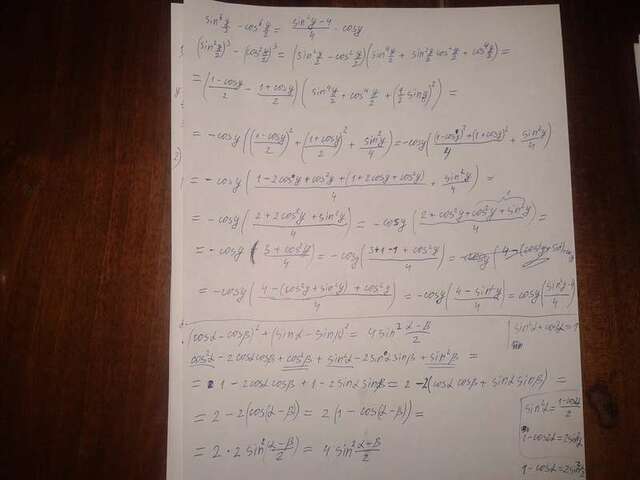 sin⁶ y/2 - cos⁶ y/2 = (sin²y - 4)/4 · cosy
(sin² y/2)³ - (cos² y/2)³ = (sin² y/2 - cos² y/2)(sin⁴ y/2 + sin² y/2 cos² y/2 + cos⁴ y/2) =
= ((1-cosy)/2 - (1+cosy)/2)(sin⁴ y/2 + cos⁴ y/2 + (1/2 siny)²) =
= -cosy(((1-cosy)/2)² + ((1+cosy)/2)² + sin²y/4) = -cosy(((1-cosy)² + (1+cosy)²)/4 + sin²y/4)
= -cosy((1-2cosy+cos²y+(1+2cosy+cos²y))/4 + sin²y/4) =
= -cosy((2+2cos²y+sin²y)/4) = -cosy((2+cos²y+cos²y+sin²y)/4) =
= -cosy((3+cos²y)/4) = -cosy((3+1-1+cos²y)/4) =
= -cosy((4-(cos²y+sin²y)+cos²y)/4) = -cosy((4-sin²y)/4) = cosy((sin²y-4)/4)
(cosα-cosβ)² + (sinα-sinβ)² = 4sin² (α-β)/2
cos²α - 2cosαcosβ + cos²β + sin²α - 2sinαsinβ + sin²β =
= 1 - 2cosαcosβ + 1 - 2sinαsinβ = 2 - 2(cosαcosβ + sinαsinβ) =
= 2 - 2(cos(α-β)) = 2(1-cos(α-β)) =
= 2·2sin²(α-β)/2 = 4sin² (α-β)/2
sin²α+cos²α=1
sin²α = (1-cos2α)/2
1-cos2α=2sin²α
1-cosα=2sin² α/2